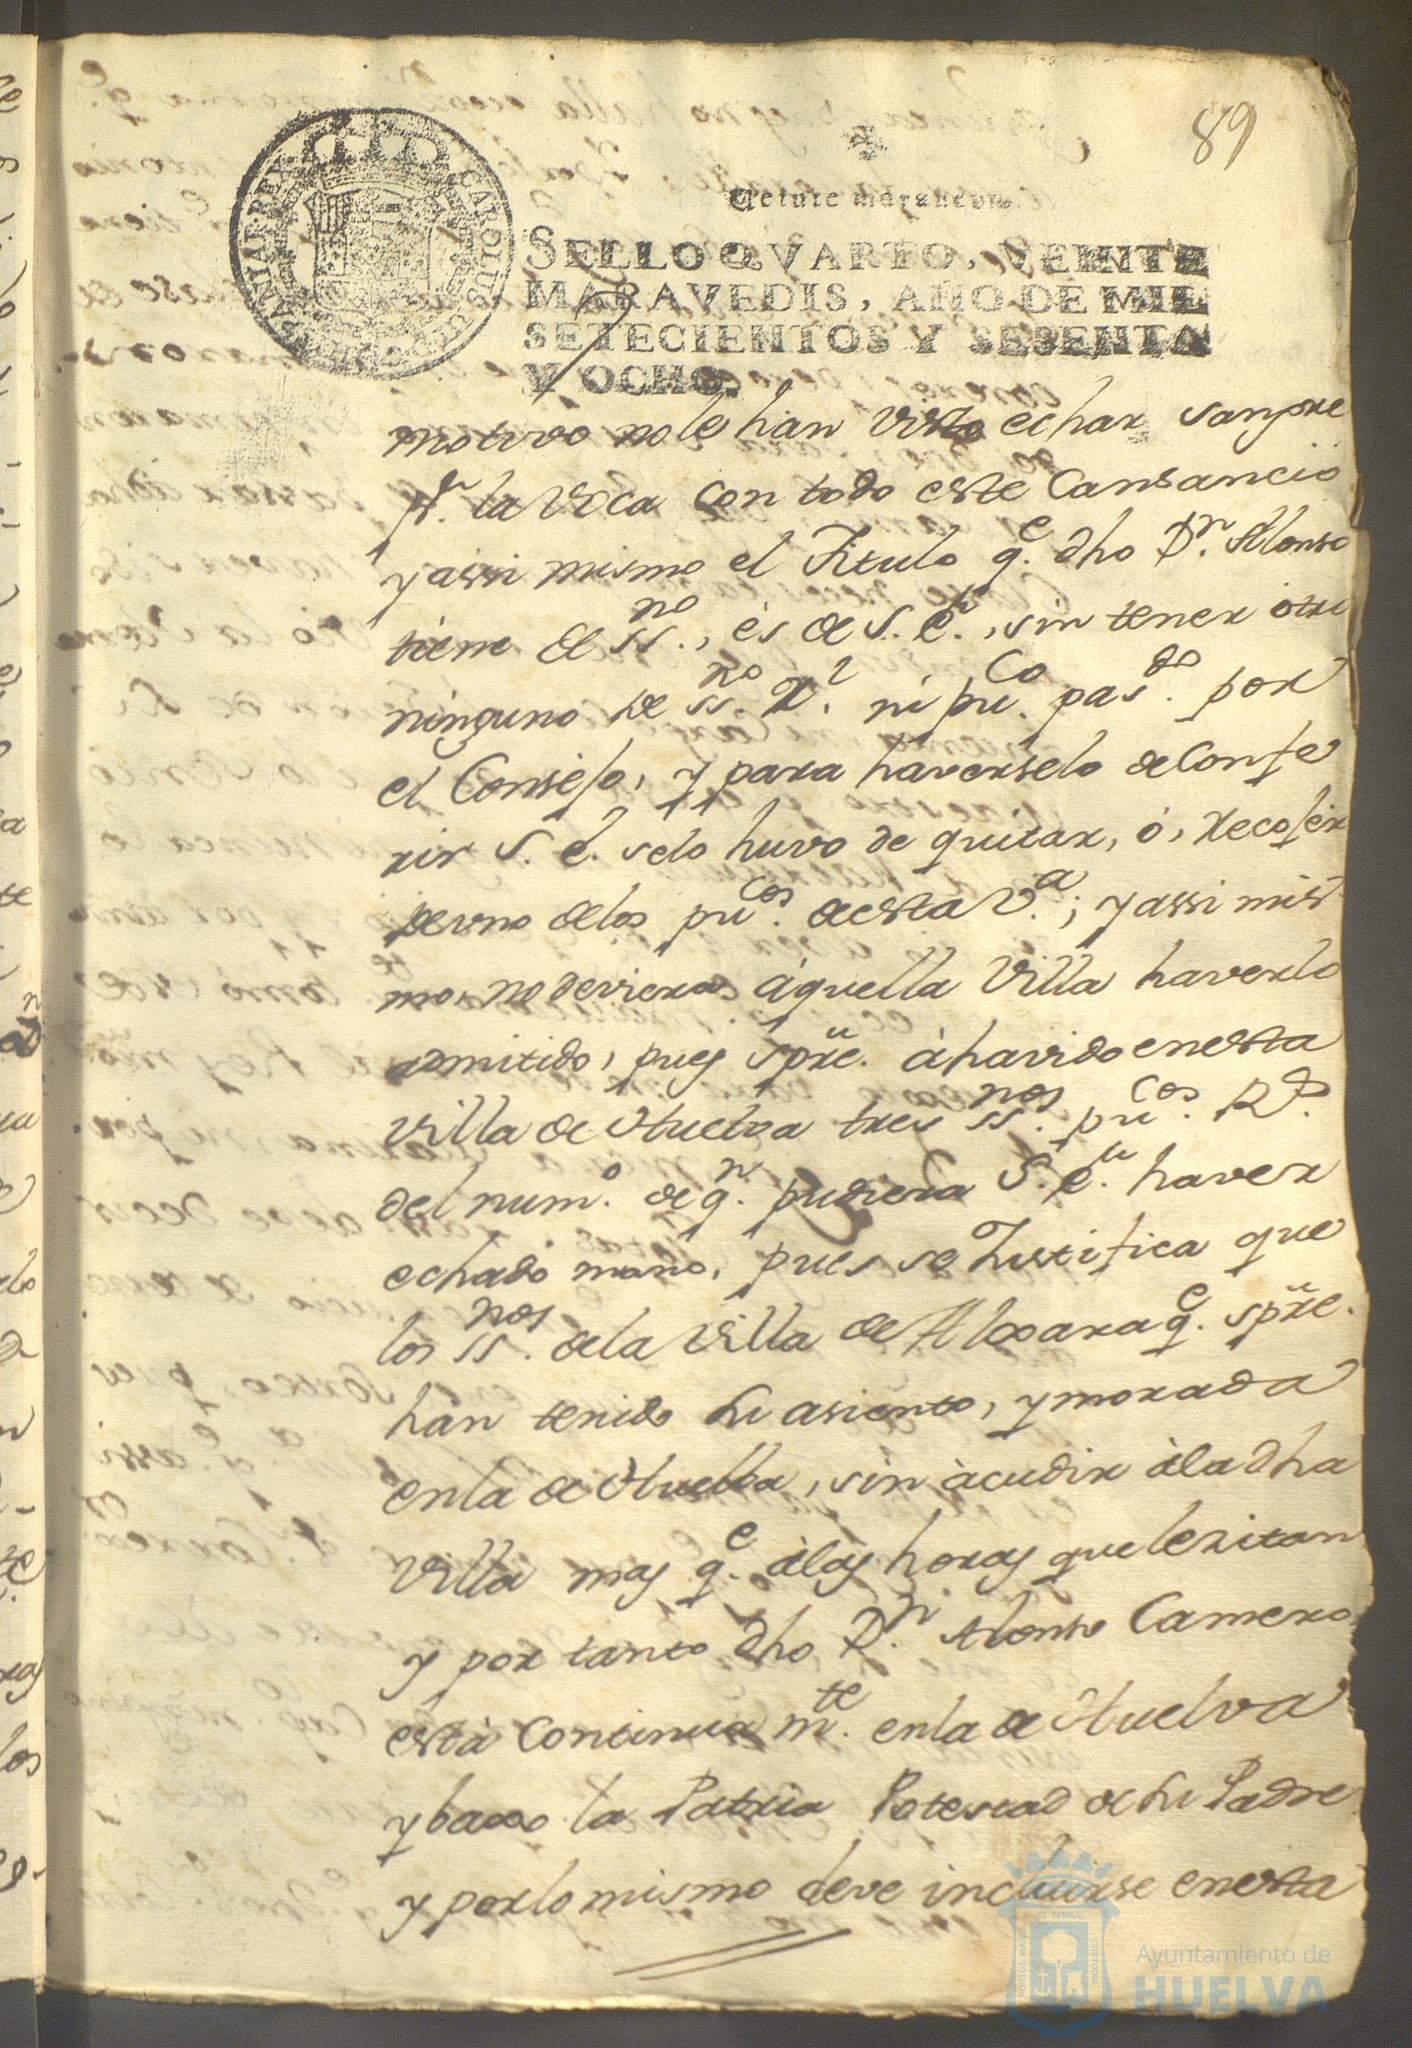 89
Veinte maravedis.
SELLO QVARTO, VEINTE
MARAVEDIS, AÑO DE MIL
SETECIENTOS Y SESENTA
Y OCHO.
motivo no le han visto echar sangre
pr. la voca con todo este Cansancio
y assi mismo el Titulo qe. dho Dn. Alonso
tiene de ssno., és de S. E., sin tener otro
ninguno de ssno. Rl. ni puco. pasdo. por
el Consejo, y para haverselo de Confe
rir S. E. se lo huvo de quitar, ó, recojer
de uno de los pucos. de esta Va.; y assi mis
mo, no deviera àquella Villa haverlo
admitido, pues spre. à havido en esta
Villa de Huelva tres ssnos. pucos. Rs.
del numo. de qn. pudiera S. E. haver
echado mano, pues se Justifica que
los ssnos. de la Villa de Aljaraqe. spre.
han tenido su asiento, y morada
en la de Huelba, sin àcudir àla dha
Villa mas qe. àlas horas que lezitan
y por tanto dho Dn. Alonso Camero
está Continuamte. en la de Huelva
y baxo la Patria Potestad de su Padre
y por lo mismo deve incluirse en esta
Ayuntamiento de
HUELVA